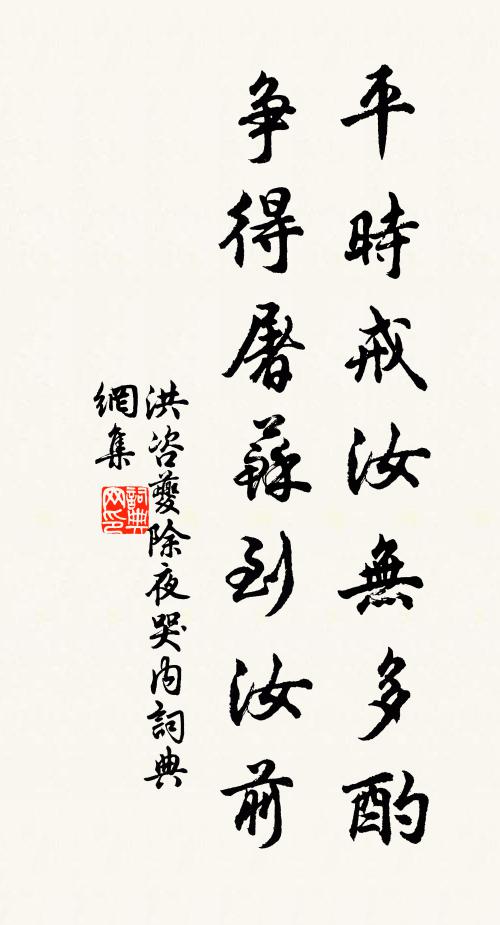 平時戒汝無多酌
争得屠蘇到汝前
洪咨夔除夜哭内詞典
網集
詞典
网印